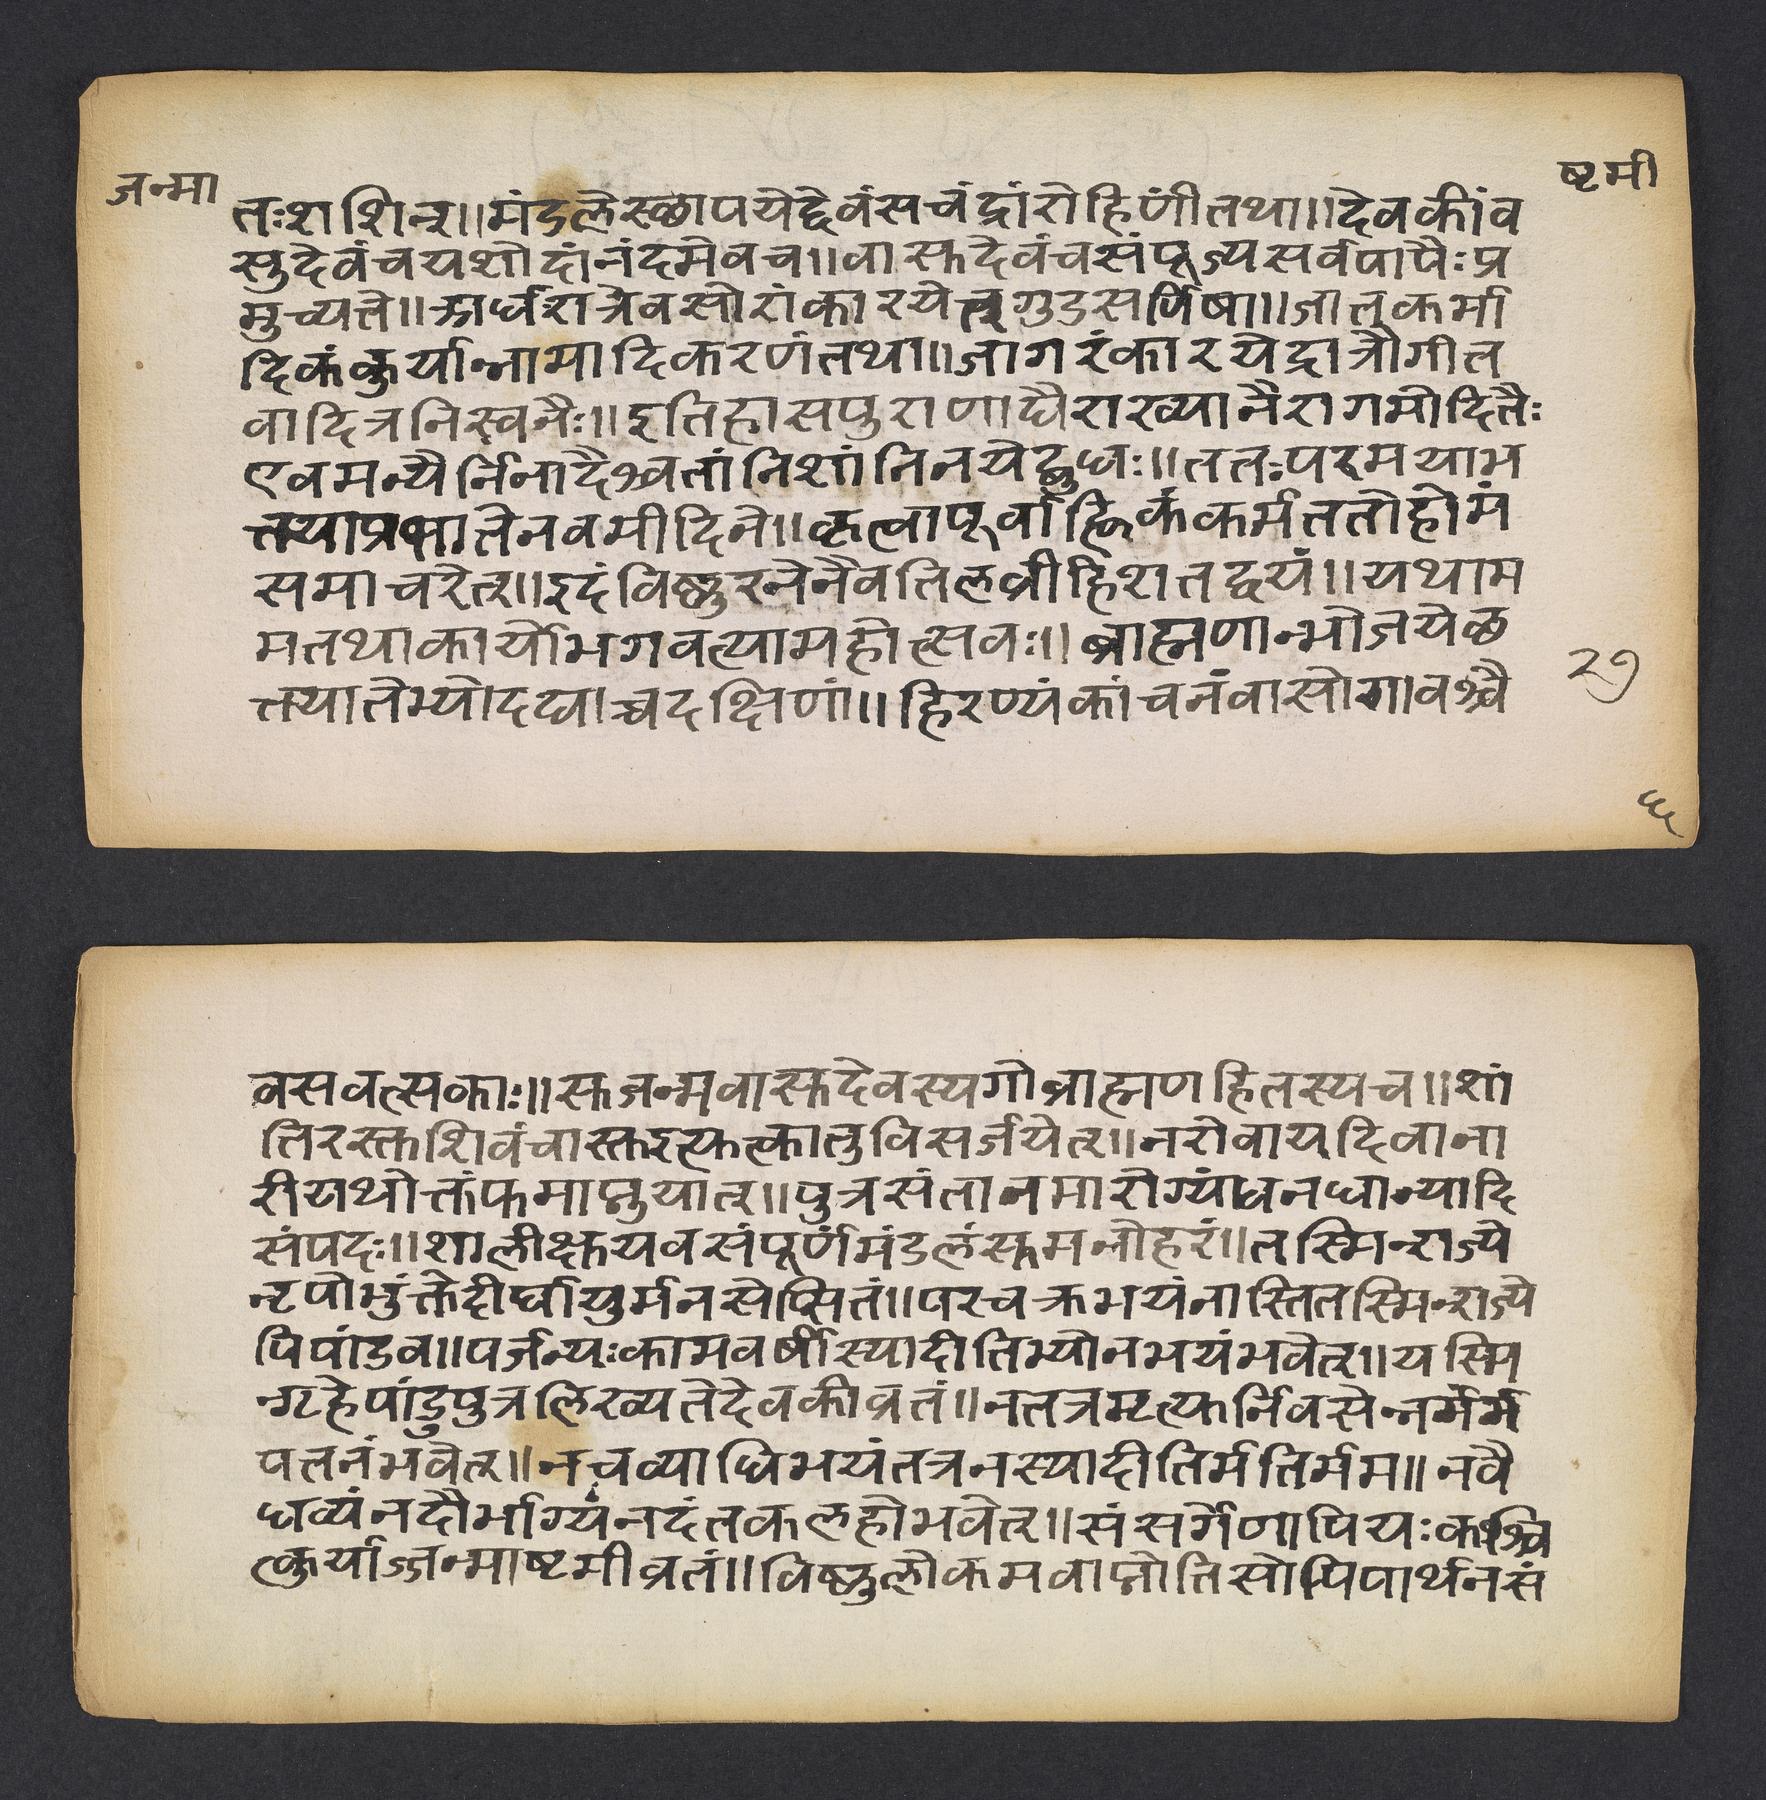 जन्मा
ष्टमी
तःशशिन्॥मंडलेस्छापयेद्देवंसचंद्रांरोहिणींतथा॥देवकींव
सुदेवंचयशोदांनंदमेवच॥वासुदेवंचसंपूज्यसर्वपापैःप्र
मुच्यते॥अर्धरात्रेवसोर्रांकारयेत्गुडसर्पिषा॥जातकर्मा
दिकंकुर्यान्नामादिकरणंतथा॥जागरंकारयेद्रात्रौगीत
वादित्रनिस्वनैः॥इतिहासपुराणाद्यैराख्यानैरागमोदितैः
एवमन्यैर्निनादैश्चतांनिशांनिनयेद्बुधः॥ततःपरमयाभ
त्तयाप्रभातेनवमीदिने॥कृत्वापूर्वाह्निकंकर्मततोहोमं
समाचरेत्॥इदंविष्णुरनेनैवतिलव्रीहिशतद्वयं॥यथाम
मतथाकार्योभगवत्यामहोत्सवः॥ब्राह्मणान्भोजयेद्भ
त्तयातेभ्योदद्याच्चदक्षिणां॥हिरण्यंकांचनंवासोगावश्चै
२७
वसवत्सकाः॥सुजन्मवासुदेवस्यगोब्राह्मणहितस्यच॥शां
तिरस्तुशिवंचास्तुइत्युत्कातुविसर्जयेत्॥नरोवायदिवाना
रीयथोक्तंफमाप्नुयात्॥पुत्रसंतानमारोग्यंधनधान्यादि
संपदः॥शालीक्षुयवसंपूर्णमंडलंसुमनोहरं॥तस्मिन्राज्ये
नृपोभुंक्तेदीर्घायुर्मनसेप्सितं॥परचक्रभयंनास्तितस्मिन्राज्ये
पिपांडव॥पर्जन्यःकामवर्षीस्यादीतिभ्योनभयंभवेत्॥यस्मि
न्गृहेपांडुपुत्रलिख्यतेदेवकीव्रतं॥नतत्रमृत्युर्निवसेन्नर्मर्म
पतनंभवेत्॥नचव्याधिभयंतत्रनस्यादीतिर्मतिर्मम॥नवै
धव्यंनदौर्भाग्यंनदंतकलहोभवेत्॥संसर्गेणापियःकश्चि
त्कुर्याज्जन्माष्टमीव्रतं॥विष्णुलोकमवाप्नोतिसोपिपार्थनसं